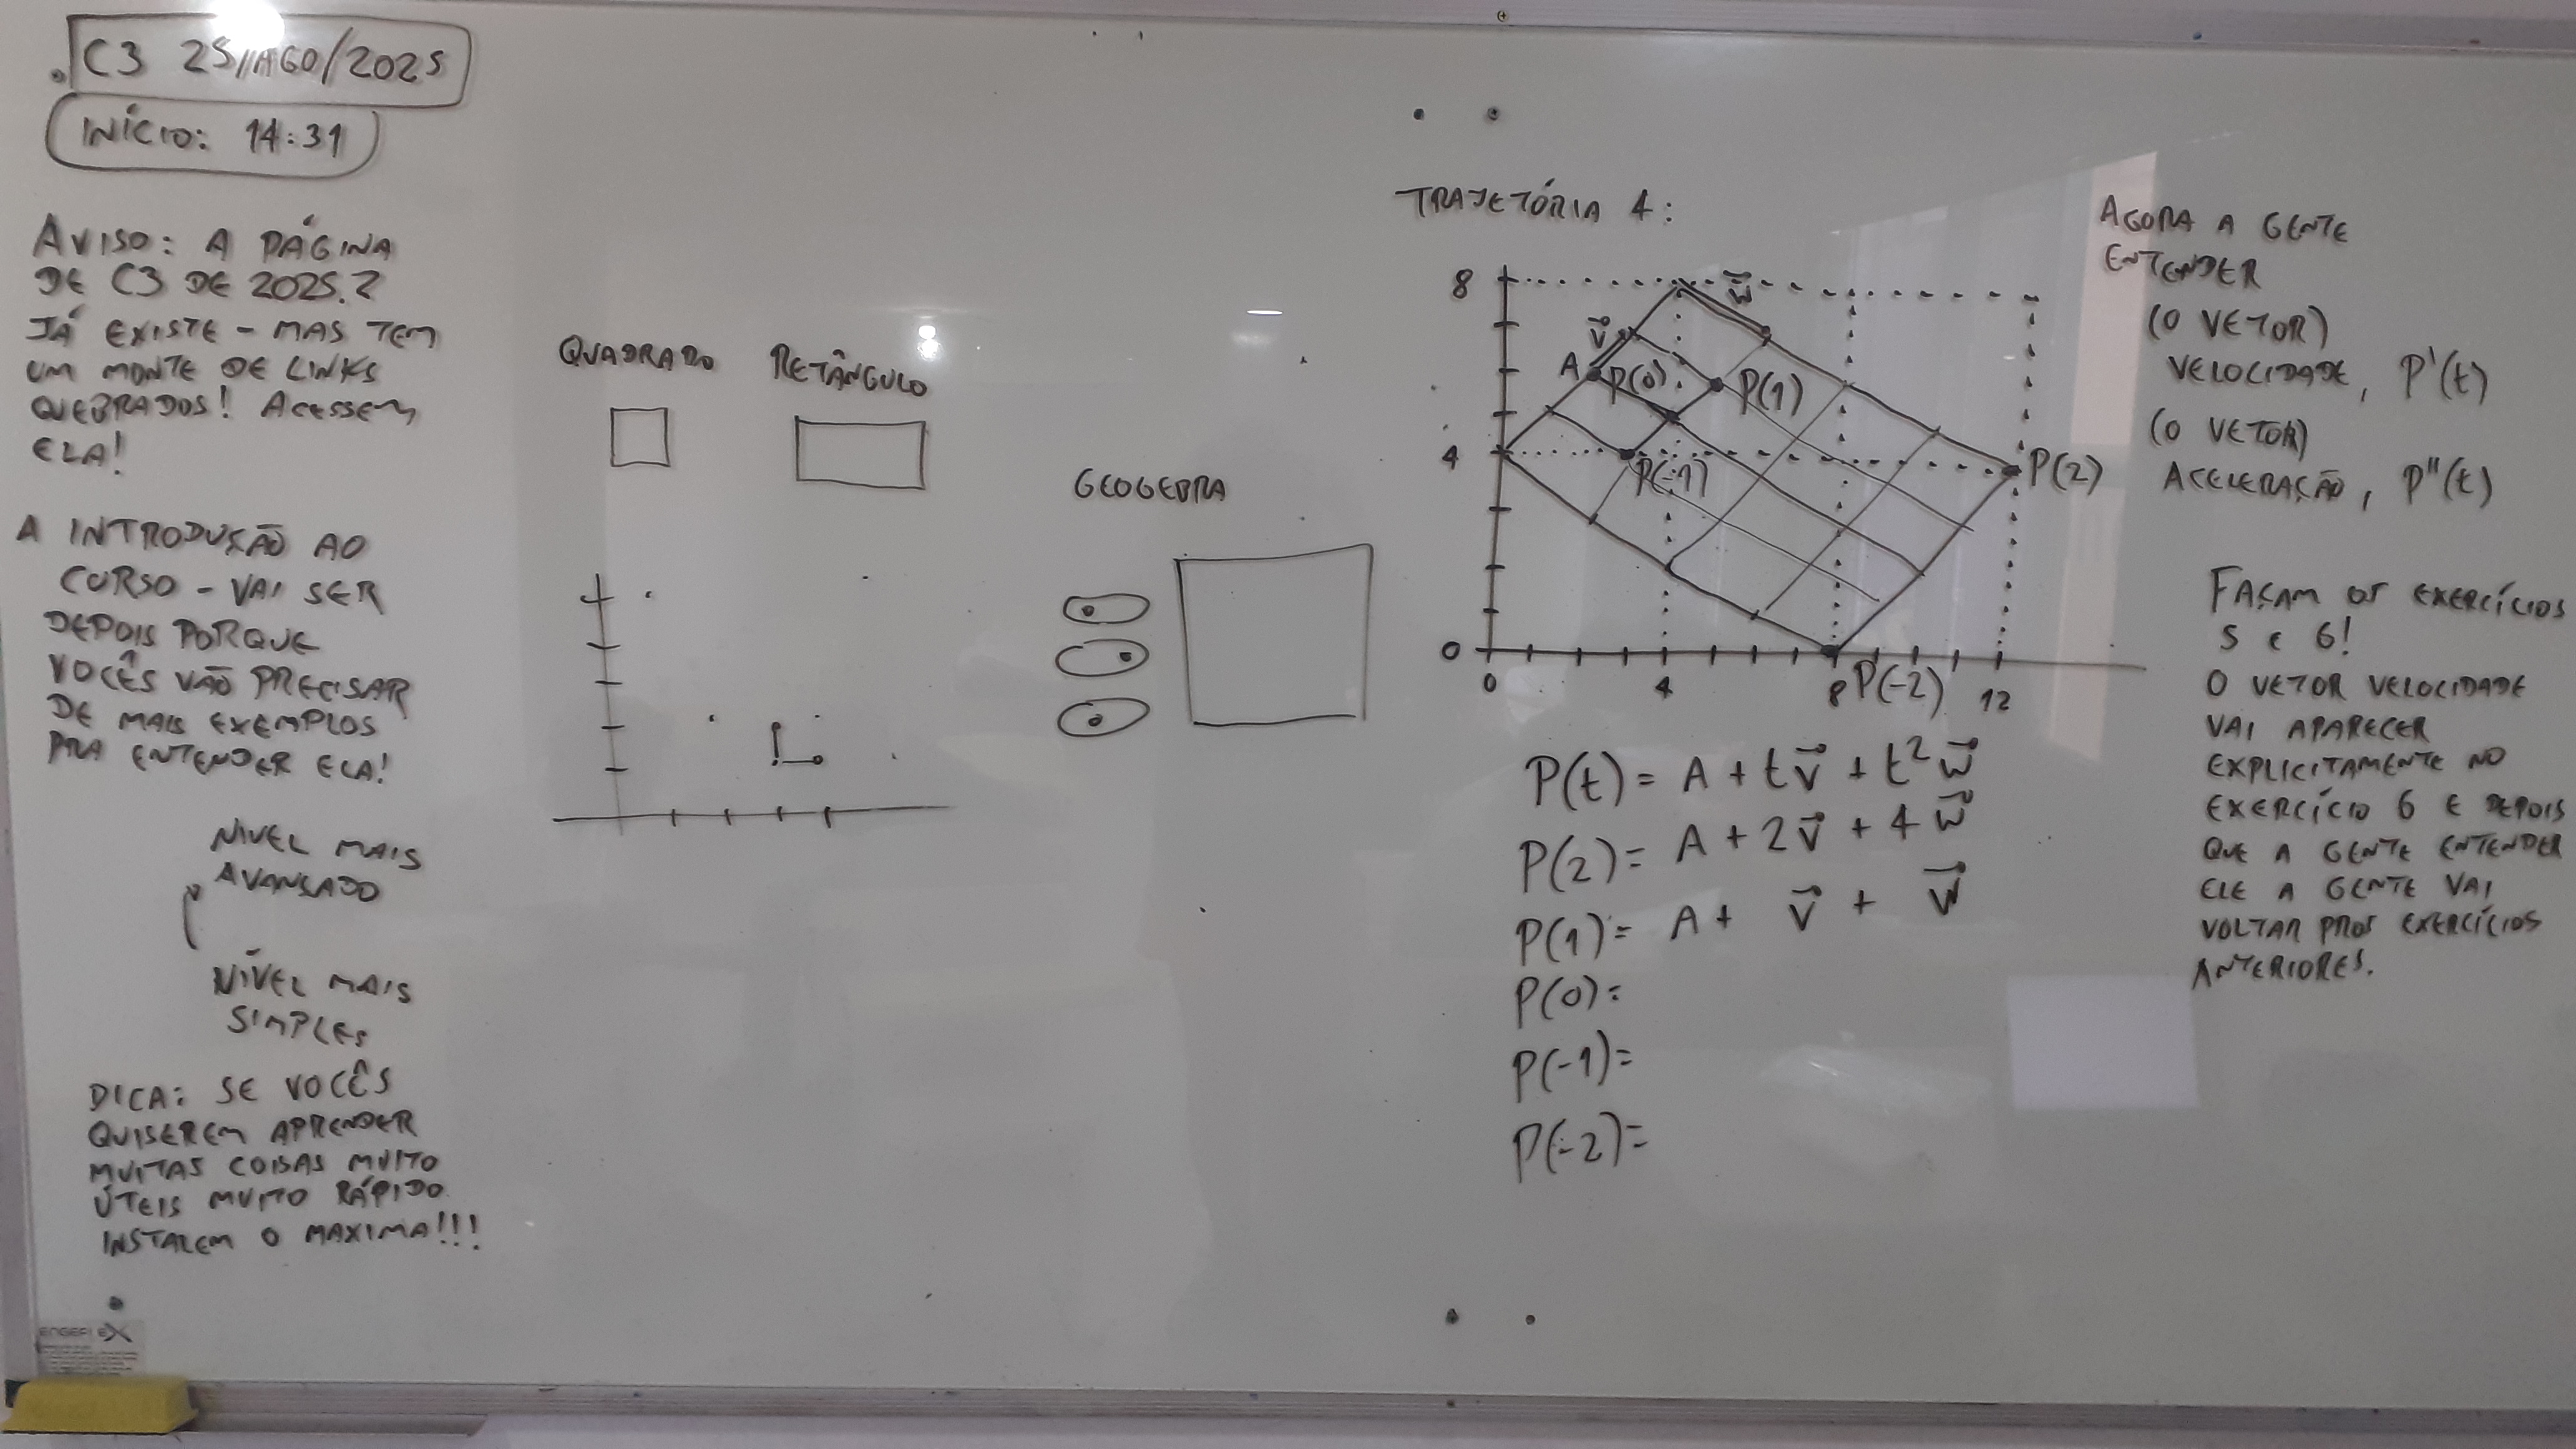 C3 25/AGO/2025
INÍCIO: 14:31
AVISO: A PÁGINA
DE C3 DE 2025.2
JÁ EXISTE - MAS TEM
UM MONTE DE LINKS
QUEBRADOS! ACESSEM
ELA!
A INTRODUÇÃO AO
CURSO - VAI SER
DEPOIS PORQUE
VOCÊS VÃO PRECISAR
DE MAIS EXEMPLOS
PRA ENTENDER ELA!
NIVEL MAIS
AVANÇADO
NÍVEL MAIS
SIMPLES
DICA: SE VOCÊS
QUISEREM APRENDER
MUITAS COISAS MUITO
ÚTEIS MUITO RÁPIDO
INSTALEM O MAXIMA!!!
QUADRADO RETÂNGULO
GEOGEBRA
TRAJETÓRIA 4:
8
w⃗
v⃗
A P(0) P(1)
4 P(-1) P(2)
0
0 4 8 P(-2) 12
P(t) = A + tv⃗ + t²w⃗
P(2) = A + 2v⃗ + 4w⃗
P(1) = A + v⃗ + w⃗
P(0) =
P(-1) =
P(-2) =
AGORA A GENTE
ENTENDER
(O VETOR)
VELOCIDADE, P'(t)
(O VETOR)
ACELERAÇÃO, P''(t)
FAÇAM OS EXERCÍCIOS
5 E 6!
O VETOR VELOCIDADE
VAI APARECER
EXPLICITAMENTE NO
EXERCÍCIO 6 E DEPOIS
QUE A GENTE ENTENDER
ELE A GENTE VAI
VOLTAR PROS EXERCÍCIOS
ANTERIORES.